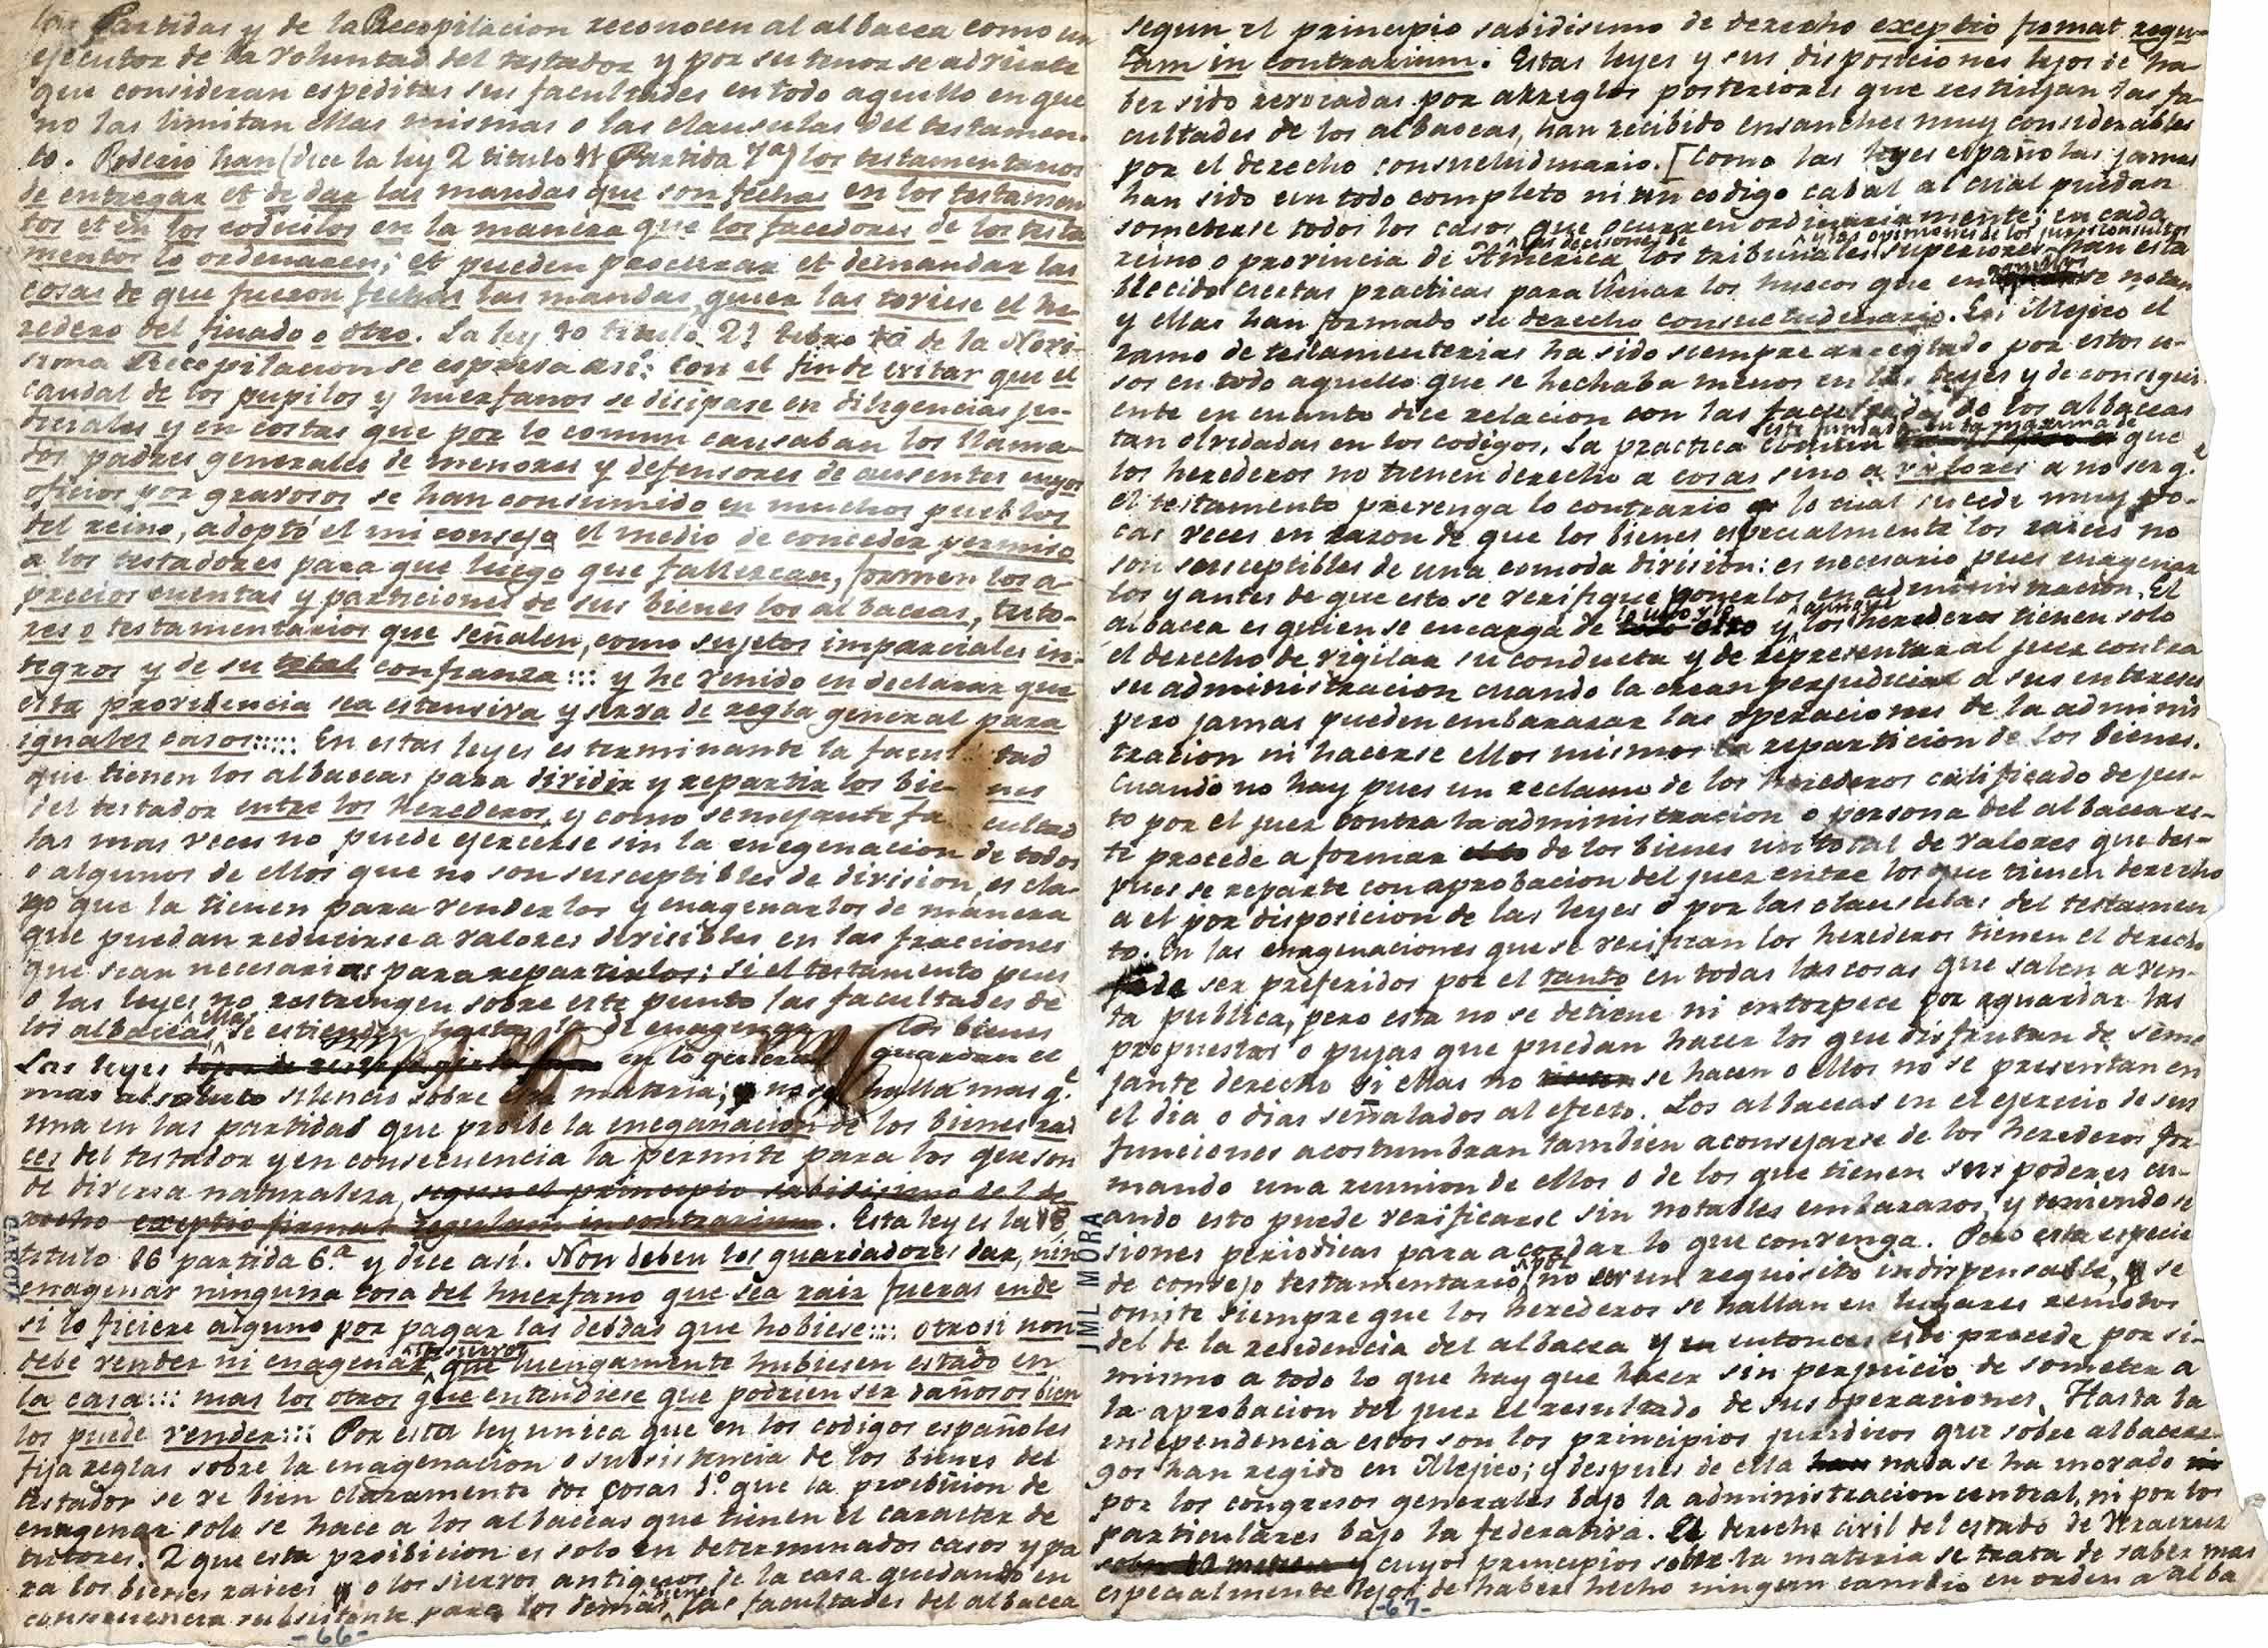 las Partidas y de la Recopilacion reconocen al albacea como un
ejecutor de la voluntad del testador y por su tenor se advierte
que consideran espeditas sus facultades en todo aquello en que
no las limitan ellas mismas o las clausulas del testamen-
to. Poderio han (dice la ley 2 titulo Partida 7a) los testamentarios
de entregar et de dar las mandas que son fechas en los testamen
tos et en los codicilos en la manera que los facedores de los testa
mentos lo ordenaren; et pueden procurar et demandar las
cosas de que fueron fechas las mandas, quier las toviese el he-
redero del finado o otro. La ley 10 titulo 21 libro 10 de la Novi-
sima Recopilacion se espresa asi: Con el fin de evitar que el
caudal de los pupilos y huerfanos se disipase en diligencias ju-
diciales y en costas que por lo comun causaban los llama-
dos padres generales de menores y defensores de ausentes cuyos
oficios por gravosos se han consumido en muchos pueblos
del reino, adoptó el mi consejo el medio de conceder permiso
a los testadores para que luego que fallezcan, formen los a-
precios cuentas y particiones de sus bienes los albaceas, tuto-
res o testamentarios que señalen, como sujetos imparciales in-
tegros y de su total confianza::: y he venido en declarar que
esta providencia sea estensiva y sirva de regla general para
iguales casos::::: En estas leyes es terminante la facul tad
que tienen los albaceas para dividir y repartir los bie- nes
del testador entre los herederos, y como semejante fa cultad
las mas veces no puede ejercerse sin la enegenacion de todos
o algunos de ellos que no son susceptibles de division, es cla-
ro que la tienen para venderlos y enagenarlos de manera
que puedan reducirse a valores divisibles en las fracciones
que sean necesarias para repartirlos: si el testamento pues
o las leyes no restringen sobre este punto las facultades de
los albaceas ellas se estienden hasta la de enagenar los bienes
Las leyes en lo general guardan el
mas absoluto silencio sobre esta materia; no se halla mas q.e
una en las partidas que proibe la eneganacion de los bienes rai
ces del testador y en consecuencia la permite para los que son
de diversa naturaleza, segun el principio sabidisimo del de-
recho exeptio firmat regulam in contrarium. Esta ley es la 18
titulo 16 partida 6.a y dice asi. Non deben los guardadores dar, nin
enagenar ninguna cosa del huerfano que sea raiz fueras ende
si lo ficiere alguno por pagar las debdas que hobiese:::: otrosi non
debe vender ni enagenar los siervos que luengamente hubiesen estado en
la casa::: mas los otros que entendiese que podrien ser dañosos bien
los puede vender::: Por esta ley unica que en los codigos españoles
fija reglas sobre la enagenacion o subsistencia de los bienes del
testador se ve bien claramente dos cosas 1.o que la proibicion de
enagenar solo se hace a los albaceas que tienen el caracter de
tutores. 2 que esta proibicion es solo en determinados casos y pa
ra los bienes raices o los siervos antiguos de la casa quedando en
consecuencia subsistente para los demas bienes las facultades del albacea
-66-
GAROLY
JML MORA
segun el principio sabidisimo de derecho exeptio firmat regu-
lam in contrarium. Estas leyes y sus disposiciones lejos de ha-
ber sido revocadas por arreglos posteriores que restinjan las fa-
cultades de los albaceas, han recibido ensanches muy considerables
por el derecho consuetudinario. [Como las leyes españolas jamas
han sido un todo completo ni un codigo cabal al cual puedan
someterse todos los casos que ocurren ordinariamente; en cada
reino o provincia de America las decisiones de los tribunales superiores y las opiniones de los jurisconsultos han esta
blecido ciertas practicas para llenar los huecos que en aquellos se notan
y ellas han formado su derecho consuetudinario. En Mejico el
ramo de testamenterias ha sido siempre arreglado por estos u-
sos en todo aquello que se hechaba menos en las leyes y de consigui
ente en cuanto dice relacion con las facultades de los albaceas
tan olvidadas en los codigos. La practica comun este fundada en la maxima de que
los herederos no tienen derecho a cosas sino a valores a no ser q.e
el testamento prevenga lo contrario lo cual sucede muy po-
cas veces en razon de que los bienes especialmente los raices no
son susceptibles de una comoda division: es necesario pues enagenar
los y antes de que esto se verifique ponerlos en administracion. El
albacea es quien se encarga de lo uno y lo otro y aunque los herederos tienen solo
el derecho de vigilar su conducta y de representar al juez contra
su administracion cuando la crean perjudicial a sus intereses
pero jamas pueden embarazar las operaciones de la adminis
tracion ni hacerse ellos mismos la reparticion de los bienes.
Cuando no hay pues un reclamo de los herederos calificado de jus-
to por el juez contra la administracion o persona del albacea es-
te procede a formar de los bienes un total de valores que des-
pues se reparte con aprobacion del juez entre los que tienen derecho
a el por disposicion de las leyes o por las clausulas del testamen
to. En las enagenaciones que se verifican los herederos tienen el derecho
de ser preferidos por el tanto en todas las cosas que salen a ven-
ta publica, pero esta no se detiene ni entorpece por aguardar las
propuestas o pujas que puedan hacer los que disfrutan de seme
jante derecho si ellas no se hacen o ellos no se presentan en
el dia o dias señalados al efecto. Los albaceas en el ejercicio de sus
funciones acostumbran tambien aconsejarse de los herederos for-
mando una reunion de ellos o de los que tienen sus poderes cu-
ando esto puede verificarse sin notables embarazos, y teniendo se
siones periodicas para acordar lo que convenga. Pero esta especie
de consejo testamentario por no ser un requisito indispensable, se
omite siempre que los herederos se hallan en lugares remotos
del de la residencia del albacea y entonces este procede por si
mismo a todo lo que hay que hacer sin perjuicio de someter a
la aprobacion del juez el resultado de sus operaciones. Hasta la
independencia estos son los principios juridicos que sobre albaceaz-
gos han regido en Mejico; y despues de ella nada se ha inovado
por los congresos generales bajo la administracion central, ni por los
particulares bajo la federativa. El derecho civil del estado de Veracruz
cuyos principios sobre la materia se trata de saber mas
especialmente lejos de haber hecho ningun cambio en orden a alba
-67-